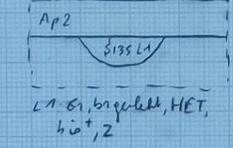 Ap2
S135 L1
L1: Gr, br gefleckt, HET,
bio+, 2